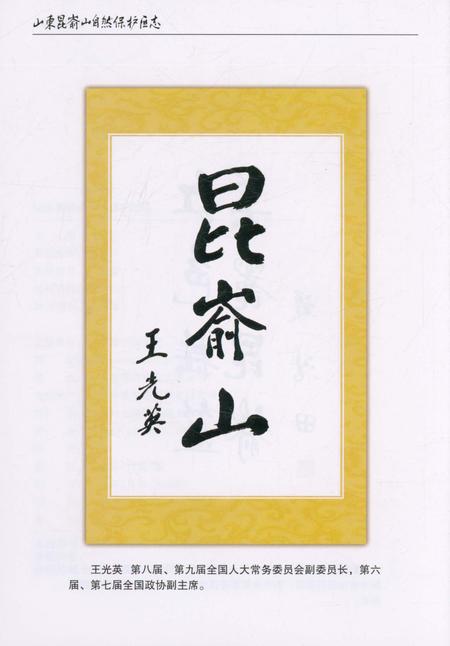 山东昆嵛山自然保护区志
昆嵛山
王光英
王光英 第八届、第九届全国人大常务委员会副委员长，第六
届、第七届全国政协副主席。